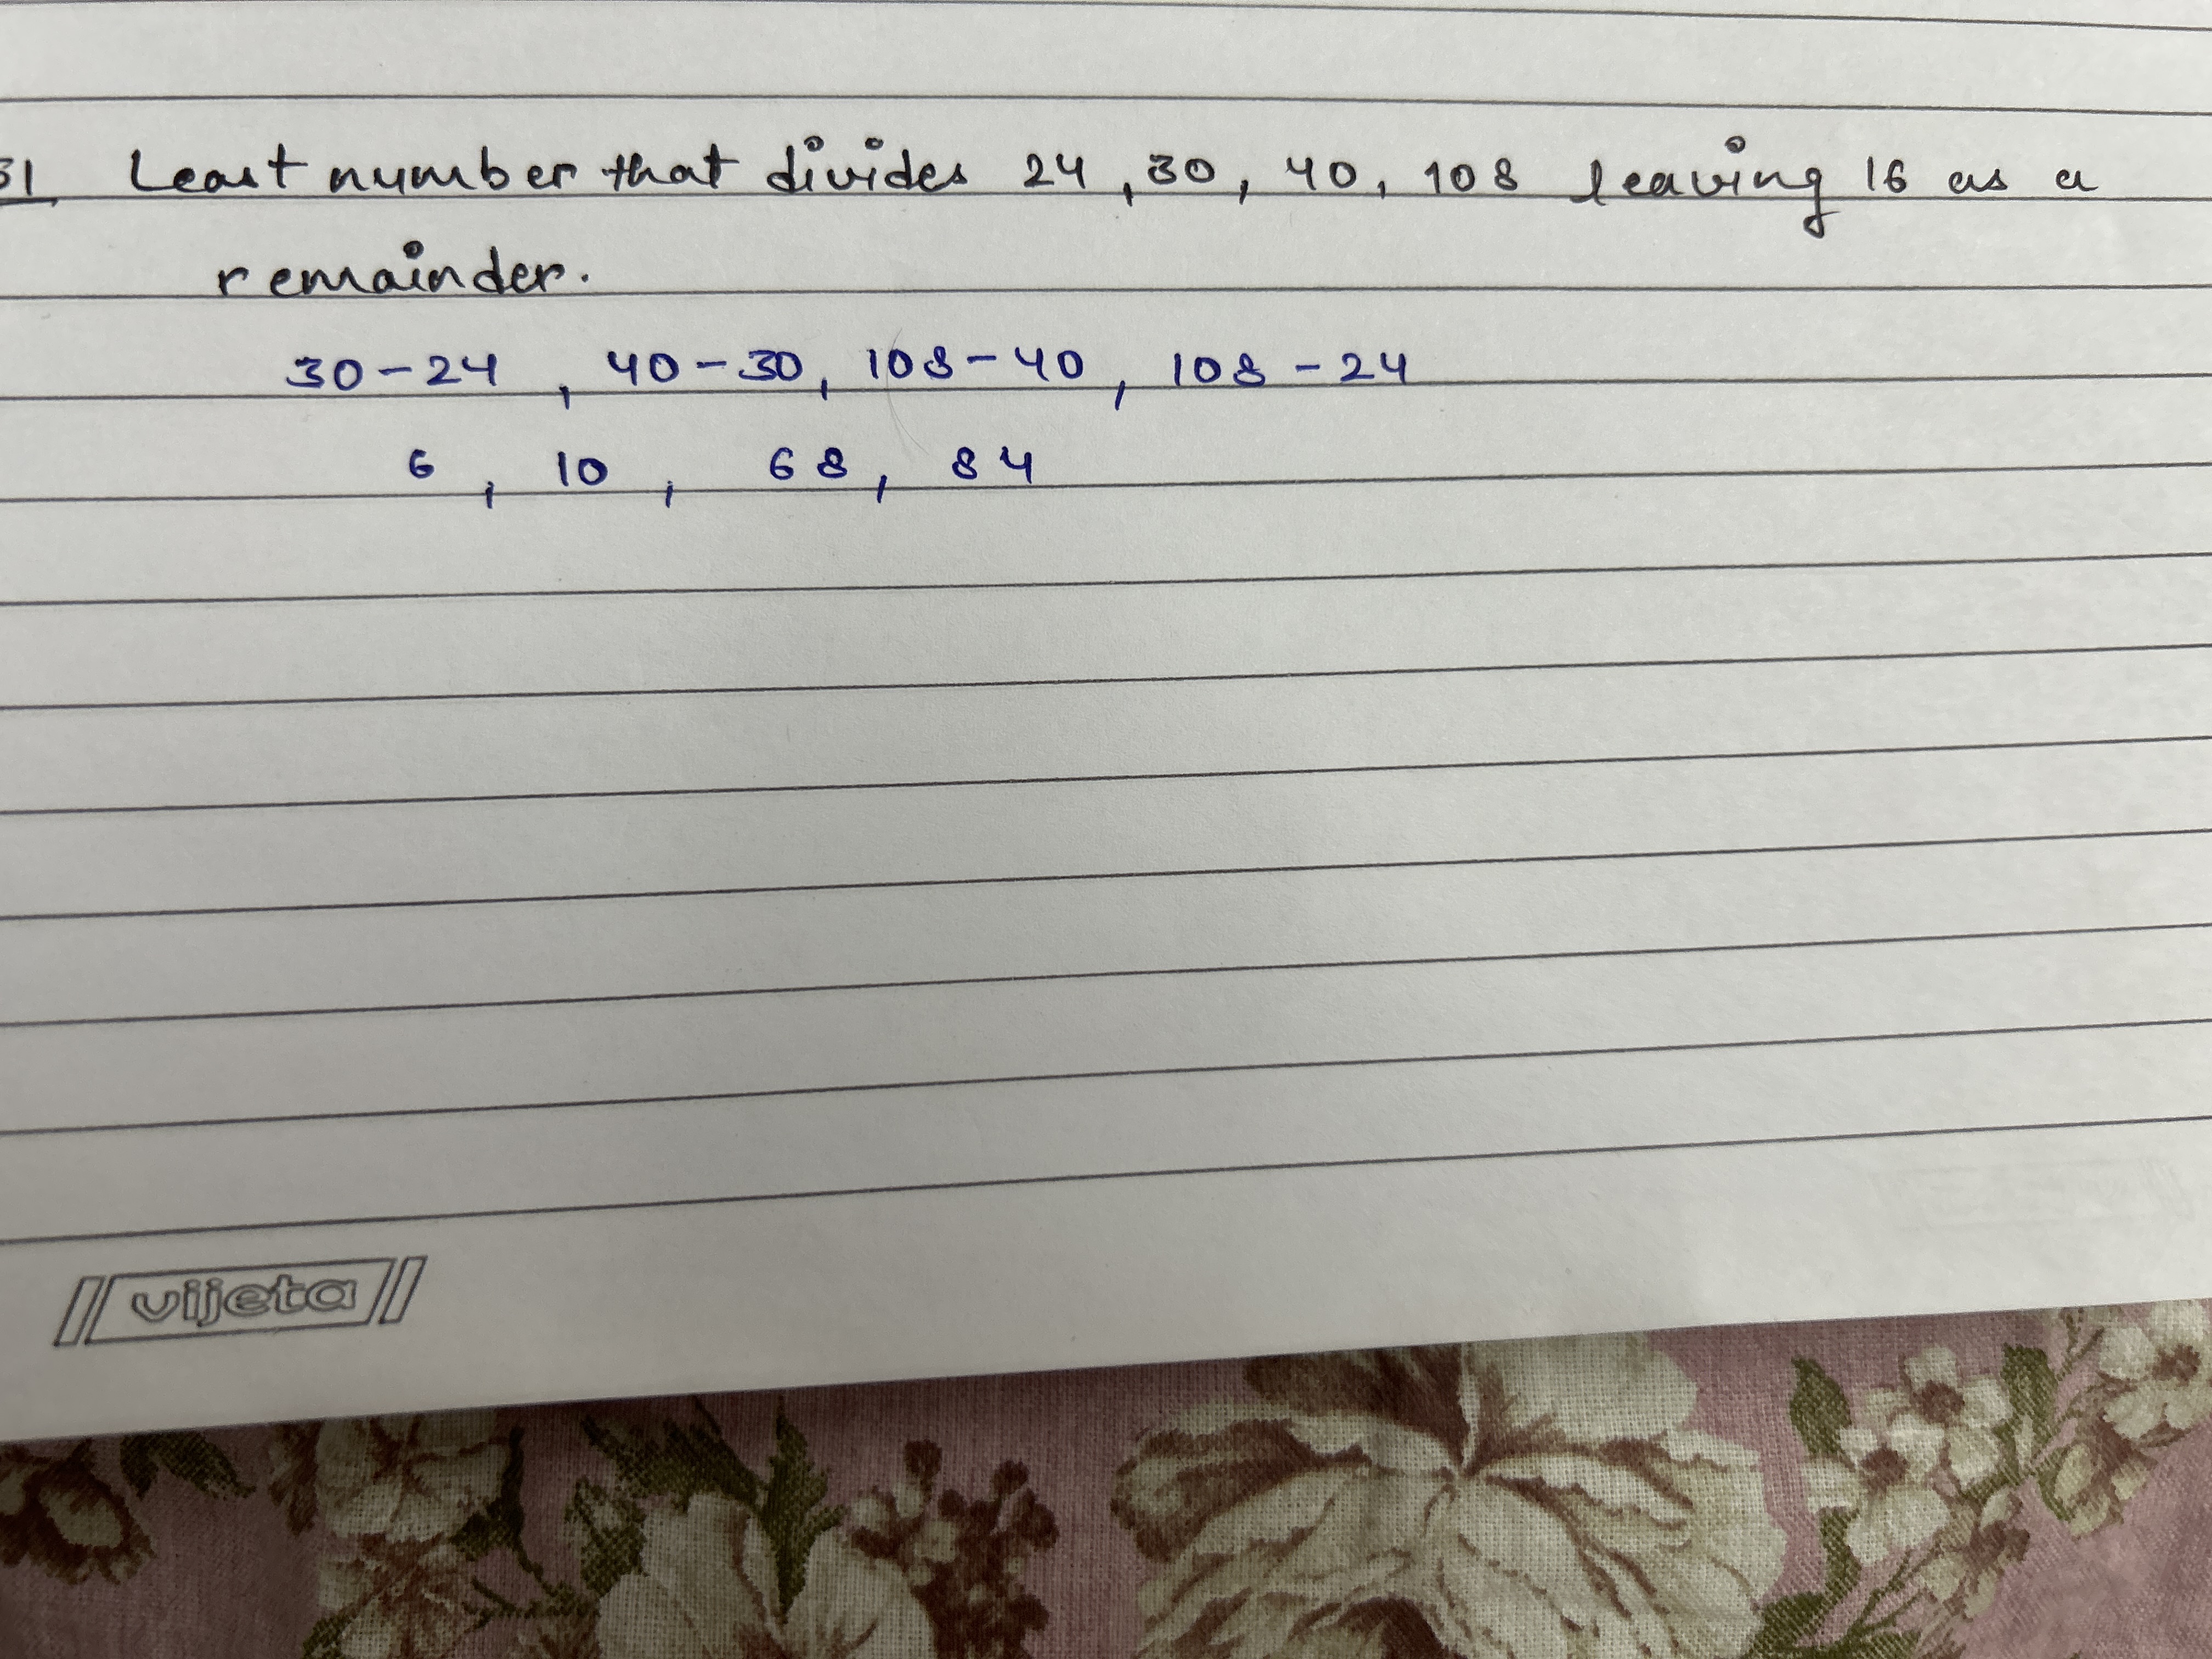 31, Least number that divides 24, 30, 40, 108 leaving 16 as a
remainder.
30-24, 40-30, 108-40, 108-24
6, 10, 68, 84
vijeta